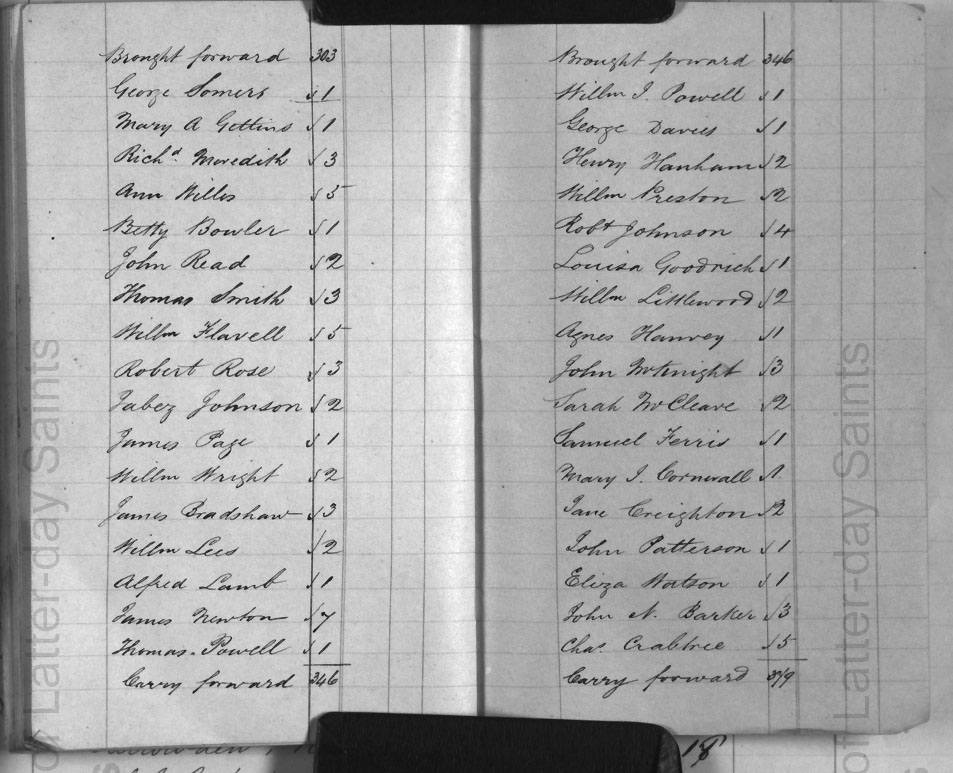 Brought forward 303
George Somers √ 1
Mary A Gettins √ 1
Richd. Meredith √ 3
Ann Willis √ 5
Betty Bowler √ 1
John Read √ 2
Thomas Smith √ 3
Willm Flavell √ 5
Robert Rose √ 3
Jabez Johnson √ 2
James Page √ 1
Willm Wright √ 2
James Bradshaw √ 3
Willm Lees √ 2
Alfred Lamb √ 1
James Newton √ 7
Thomas Powell √ 1
Carry forward 346
Brought forward 346
Willm J. Powell √ 1
George Davies √ 1
Henry Hanham √ 2
Willm Preston √ 2
Robt Johnson √ 4
Louisa Goodrich √ 1
Willm Littlewood √ 2
Agnes Hanvey √ 1
John McKnight √ 3
Sarah McCleave √ 2
Samuel Ferris √ 1
Mary J. Cornwall √ 1
Jane Creighton √ 2
John Patterson √ 1
Eliza Watson √ 1
John N. Barker √ 3
Chas. Crabtree √ 5
Carry forward 379
of Latter-day Saints
of Latter-day Saints
18